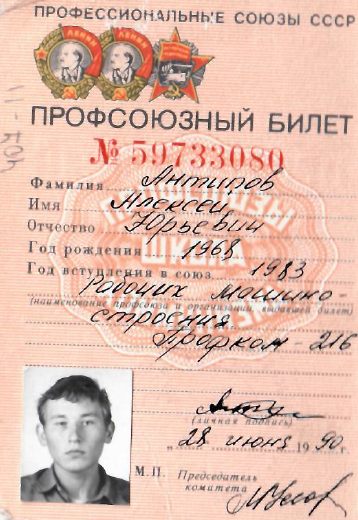 ПРОФЕССИОНАЛЬНЫЕ СОЮЗЫ СССР
ЛЕНИН
ЛЕНИН
ПРОФСОЮЗНЫЙ БИЛЕТ
№ 59733080
Фамилия Антипов
Имя Алексей
Отчество Юрьевич
Год рождения 1968
Год вступления в союз 1983
Рабочих Машино-
(наименование профсоюза и организации, выдавшей билет)
строения
Профком - 216
(личная подпись)
„ 28 июня 1990г.
М.П. Председатель
комитета